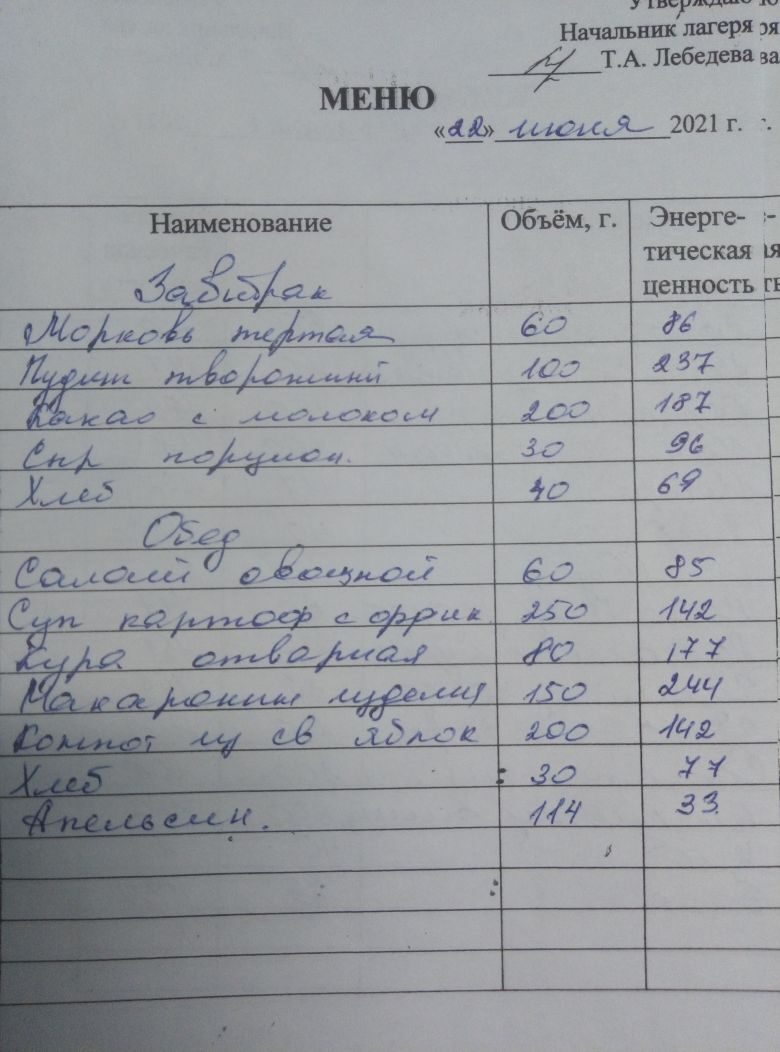 Утверждаю
Начальник лагеря
Т.А. Лебедева
МЕНЮ
«22» июня 2021 г.
Наименование Объём, г. Энерге-
тическая
ценность
Завтрак
Морковь тертая 60 86
Пудинг творожный 100 237
Какао с молоком 200 187
Сыр порцион. 30 96
Хлеб 40 69
Обед
Салат овощной 60 85
Суп картоф с фрик 250 142
Кура отварная 80 177
Макаронные изделия 150 244
Компот из св яблок 200 142
Хлеб 30 77
Апельсин. 114 33